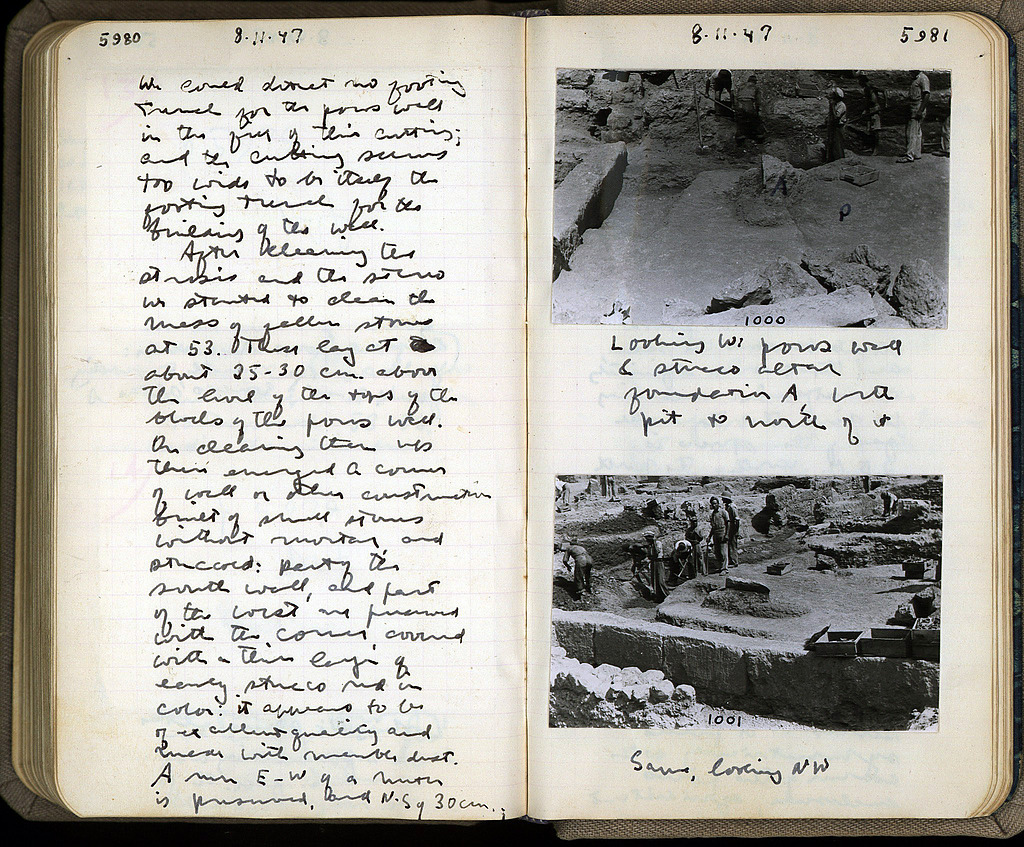 5980
8·11·47
We could detect no footing
trench for the poros wall
in the face of this cutting;
and the cutting seems
too wide to be itself the
footing trench for the
building of the wall.
After cleaning the
strosis and the stereo
we started to clean the
mass of fallen stones
at 53. These lay at
about 25-30 cm. above
the level of the tops of the
blocks of the poros wall.
On cleaning them up
there emerged a corner
of wall or other construction
built of small stones
without mortar and
stuccoed: part of the
south wall, and part
of the west are preserved
with the corner covered
with a thin layer of
early stucco red in
color: it appears to be
of excellent quality and
made with marble dust.
A run E-W of a meter
is preserved, and N-S of 30 cm.;
8·11·47
5981
P
1000
Looking W: poros wall
& stucco altar
foundation A, with
pit to north of it
1001
Same, looking NW